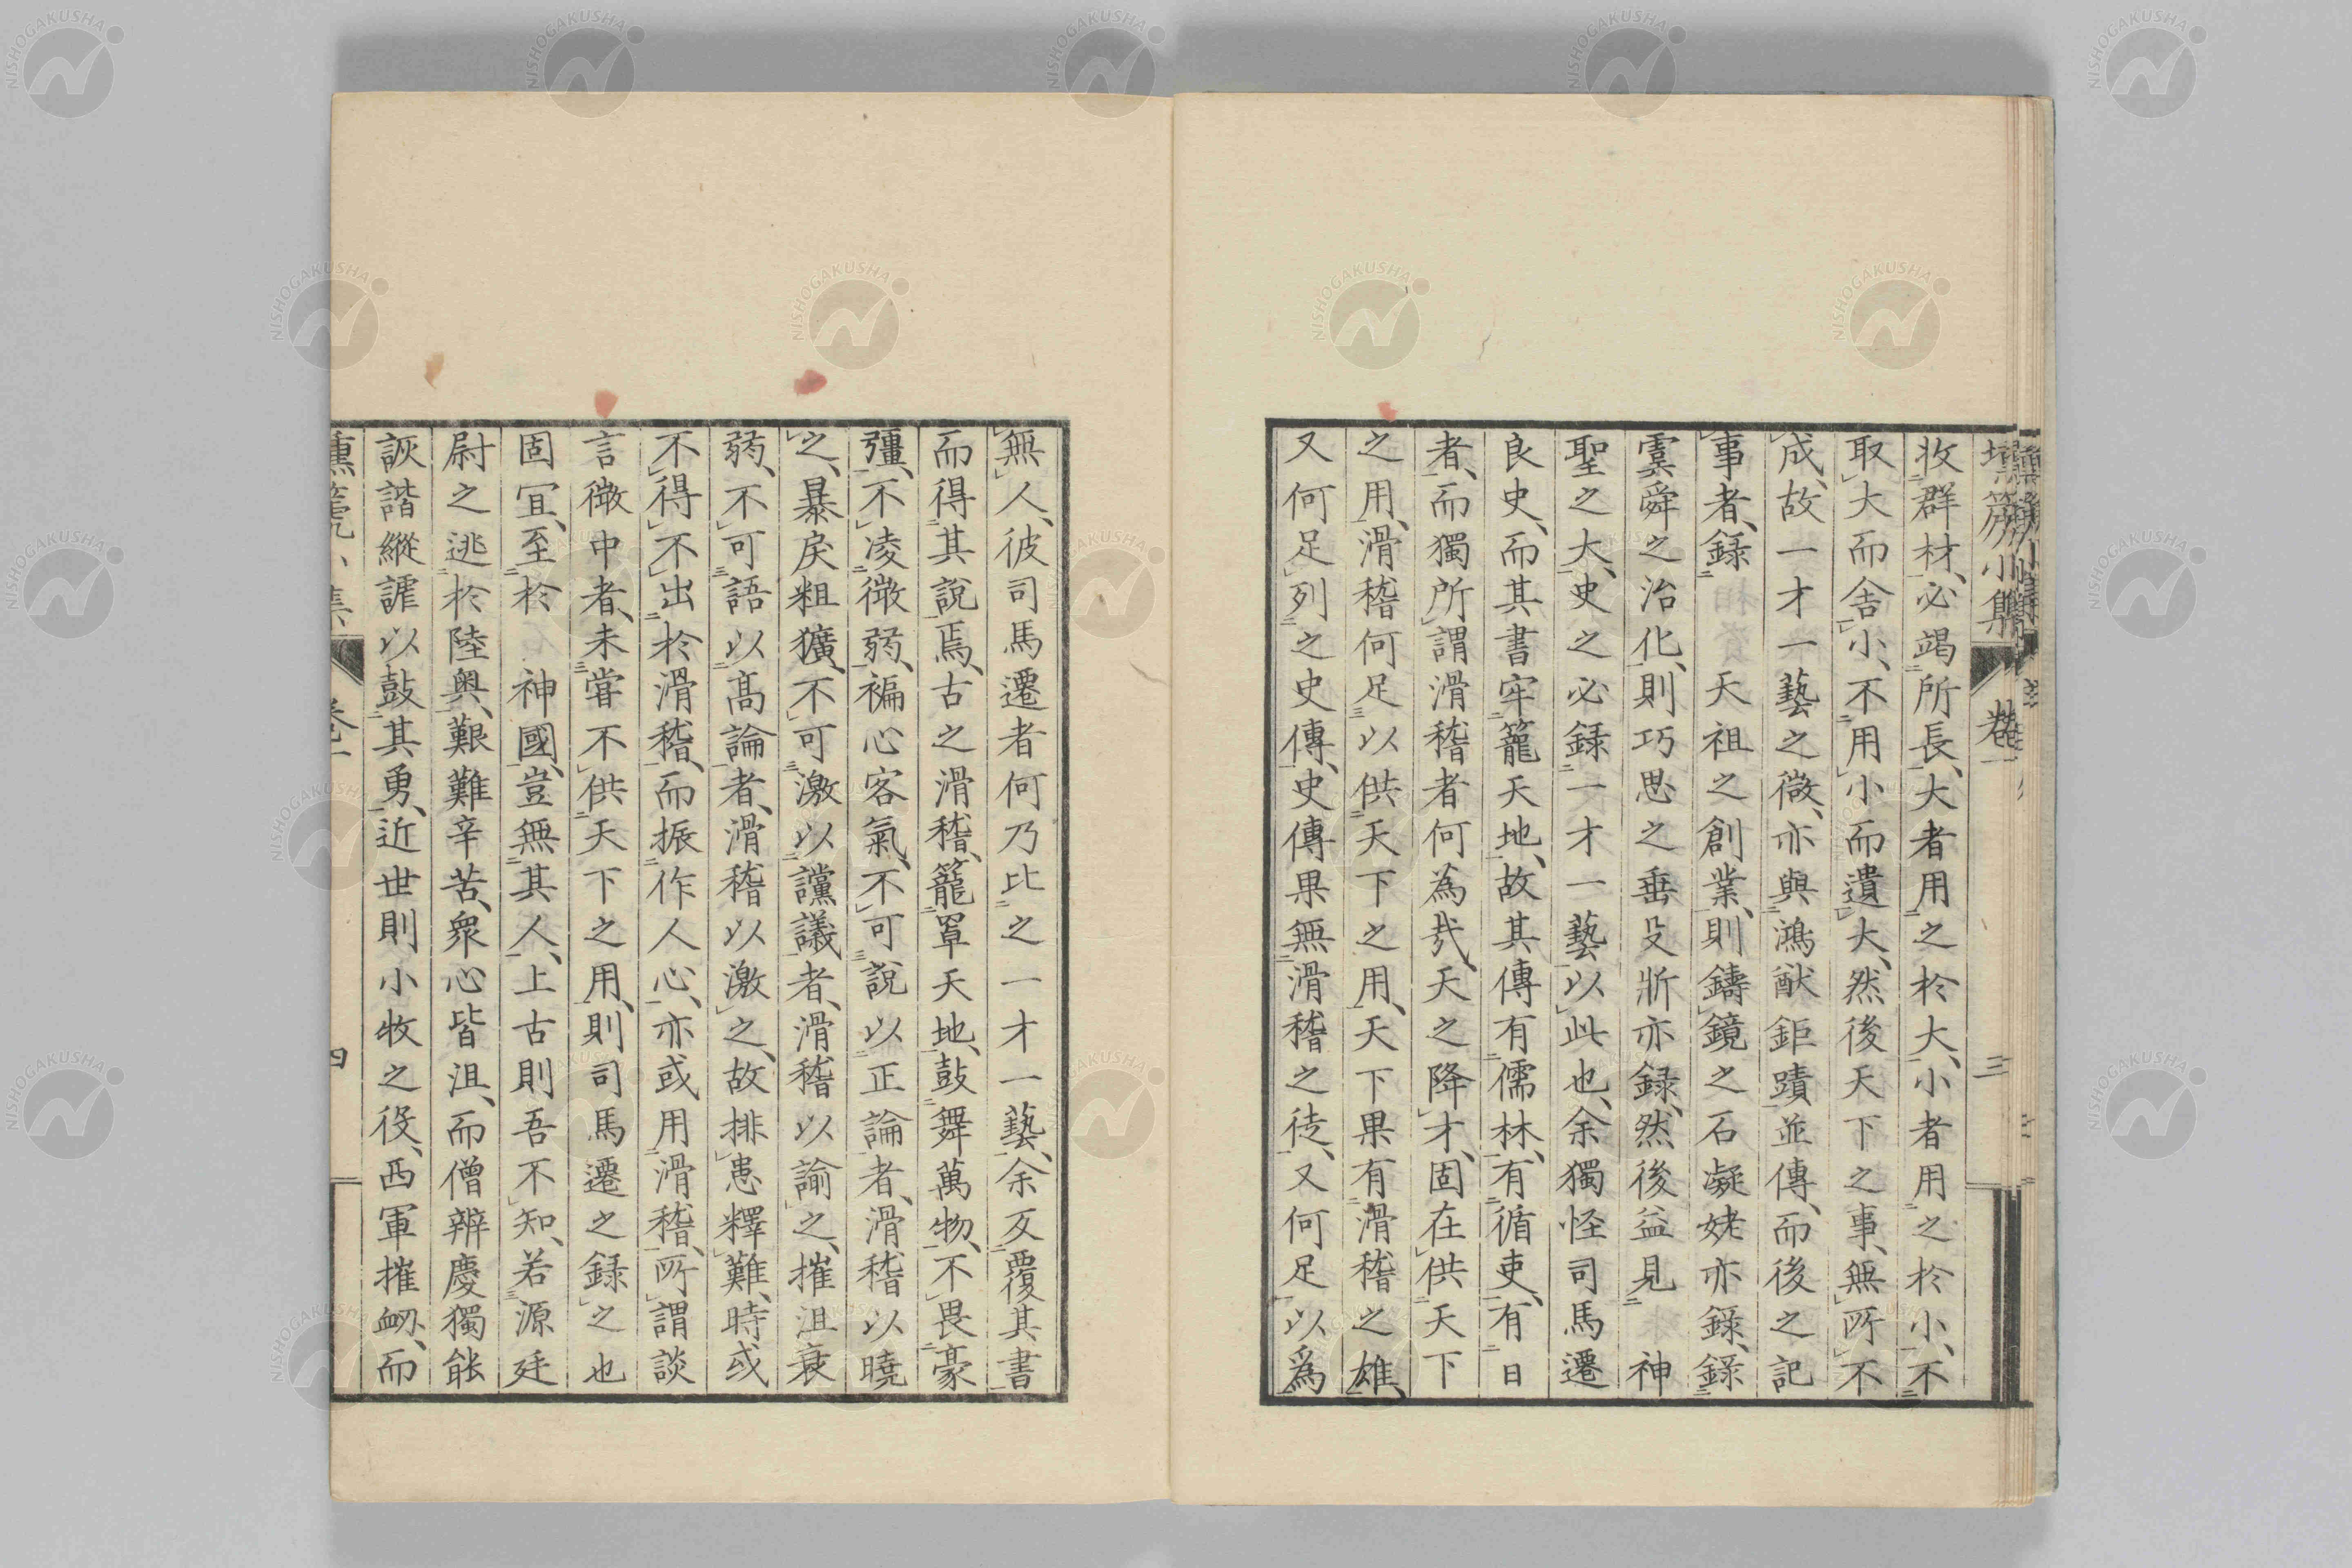 壎篪小集 卷一 三
收群材、必竭所長、大者用之於大、小者用之於小、不
取大而舍小、不用小而遺大、然後天下之事、無所不
成、故一才一藝之微、亦與鴻猷鉅蹟並傳、而後之記
事者、錄 天祖之創業、則鑄鏡之石凝姥亦錄、錄
虞舜之治化、則巧思之垂殳斨亦録、然後益見 神
聖之大、史之必録一才一藝以此也、余獨怪司馬遷
良史、而其書牢籠天地、故其傳有儒林、有循吏、有日
者、而獨所謂滑稽者何為哉、天之降才、固在供天下
之用、滑稽何足以供天下之用、天下果有滑稽之雄、
又何足列之史傳、史傳果無滑稽之徒、又何足以爲
無人、彼司馬遷者何乃比之一才一藝、余反覆其書
而得其說焉、古之滑稽、籠罩天地、鼓舞萬物、不畏豪
彊、不凌微弱、褊心客氣、不可說以正論者、滑稽以曉
之、暴戾粗獷、不可激以讜議者、滑稽以諭之、摧沮衰
弱、不可語以高論者、滑稽以激之、故排患釋難、時或
不得不出於滑稽、而振作人心、亦或用滑稽、所謂談
言微中者、未嘗不供天下之用、則司馬遷之録之也
固宜、至於 神國、豈無其人、上古則吾不知、若源廷
尉之逃於陸奥、艱難辛苦、衆心皆沮、而僧辨慶獨能
詼諧縱謔以鼓其勇、近世則小牧之役、西軍摧衂、而
壎篪小集 卷一 四